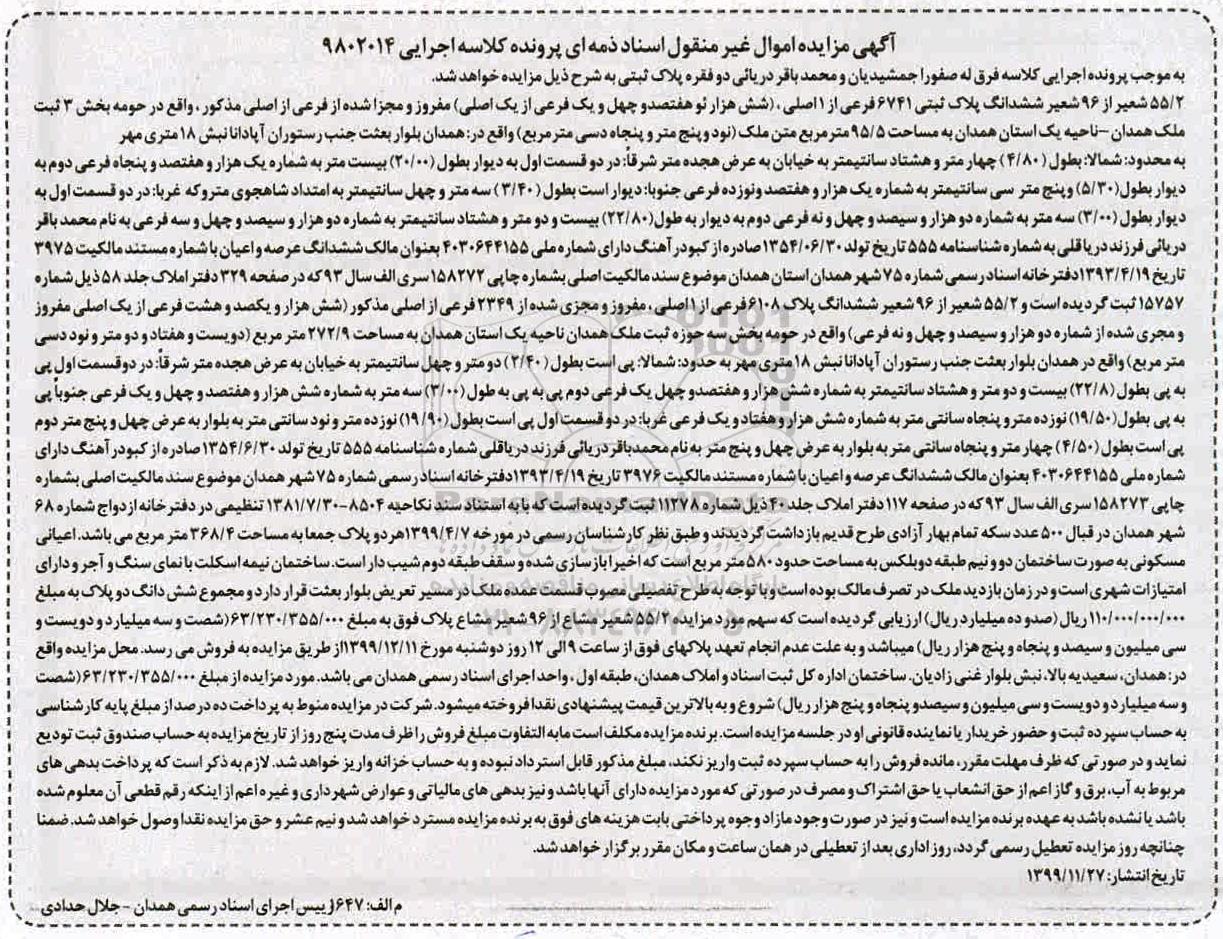 آگهی مزایده اموال غیر منقول اسناد ذمه ای پرونده کلاسه اجرایی ۹۸۰۲۰۱۴
به موجب پرونده اجرایی کلاسه فرق له صفورا جمشیدیان و محمد باقر دریائی دو فقره پلاک ثبتی به شرح ذیل مزایده خواهد شد.
۵۵/۲ شعیر از ۹۶ شعیر ششدانگ پلاک ثبتی ۶۷۴۱ فرعی از ۱ اصلی ، (شش هزار ئو هفتصدو چهل و یک فرعی از یک اصلی) مفروز و مجزا شده از فرعی از اصلی مذکور ، واقع در حومه بخش ۳ ثبت
ملک همدان –ناحیه یک استان همدان به مساحت ۹۵/۵ مترمربع متن ملک (نود و پنج متر و پنجاه دسی مترمربع) واقع در: همدان بلوار بعثت جنب رستوران آپادانا نبش ۱۸ متری مهر
به محدود: شمالا: بطول (۴/۸۰) چهار متر و هشتاد سانتیمتر به خیابان به عرض هجده متر شرقاً: در دو قسمت اول به دیوار بطول (۲۰/۰۰) بیست متر به شماره یک هزار و هفتصد و پنجاه فرعی دوم به
دیوار بطول(۵/۳۰) و پنج متر سی سانتیمتر به شماره یک هزار و هفتصد ونوزده فرعی جنوبا: دیوار است بطول (۳/۴۰) سه متر و چهل سانتیمتر به امتداد شاهجوی متروکه غربا: در دو قسمت اول به
دیوار بطول (۳/۰۰) سه متر به شماره دو هزار و سیصد و چهل و نه فرعی دوم به دیوار به طول(۲۲/۸۰) بیست و دو متر و هشتاد سانتیمتر به شماره دو هزار و سیصد و چهل و سه فرعی به نام محمد باقر
دریائی فرزند دریا قلی به شماره شناسنامه ۵۵۵ تاریخ تولد ۱۳۵۴/۰۶/۳۰ صادره از کبودر آهنگ دارای شماره ملی ۴۰۳۰۶۴۴۱۵۵ بعنوان مالک ششدانگ عرصه و اعیان با شماره مستند مالکیت ۳۹۷۵
تاریخ ۱۳۹۳/۴/۱۹ دفتر خانه اسناد رسمی شماره ۷۵ شهر همدان استان همدان موضوع سند مالکیت اصلی بشماره چاپی ۱۵۸۲۷۲ سری الف سال ۹۳ که در صفحه ۳۲۹ دفتر املاک جلد ۵۸ ذیل شماره
۱۵۷۵۷ ثبت گردیده است و ۵۵/۲ شعیر از ۹۶ شعیر ششدانگ پلاک ۶۱۰۸ فرعی از ۱ اصلی ، مفروز و مجزی شده از ۲۳۴۹ فرعی از اصلی مذکور (شش هزار و یکصد و هشت فرعی از یک اصلی مفروز
و مجری شده از شماره دو هزار و سیصد و چهل و نه فرعی) واقع در حومه بخش سه حوزه ثبت ملک همدان ناحیه یک استان همدان به مساحت ۲۷۲/۹ متر مربع (دویست و هفتاد و دو متر و نود دسی
متر مربع) واقع در همدان بلوار بعثت جنب رستوران آپادانا نبش ۱۸ متری مهر به حدود: شمالا: پی است بطول (۲/۴۰) دو متر و چهل سانتیمتر به خیابان به عرض هجده متر شرقاً: در دوقسمت اول پی
به پی بطول (۲۲/۸) بیست و دو متر و هشتاد سانتیمتر به شماره شش هزار و هفتصدو چهل یک فرعی دوم پی به پی به طول (۳/۰۰) سه متر به شماره شش هزار و هفتصد و چهل و یک فرعی جنوباً پی
به پی بطول (۱۹/۵۰) نوزده متر و پنجاه سانتی متر به شماره شش هزار و هفتاد و یک فرعی غربا: در دو قسمت اول پی است بطول (۱۹/۹۰) نوزده متر و نود سانتی متر به بلوار به عرض چهل و پنج متر دوم
پی است بطول (۴/۵۰) چهار متر و پنجاه سانتی متر به بلوار به عرض چهل و پنج متر به نام محمدباقر دریائی فرزند دریاقلی شماره شناسنامه ۵۵۵ تاریخ تولد ۱۳۵۴/۶/۳۰ صادره از کبودر آهنگ دارای
شماره ملی ۴۰۳۰۶۴۴۱۵۵ بعنوان مالک ششدانگ عرصه و اعیان با شماره مستند مالکیت ۳۹۷۶ تاریخ ۱۳۹۳/۴/۱۹ دفترخانه اسناد رسمی شماره ۷۵ شهر همدان موضوع سند مالکیت اصلی بشماره
چاپی ۱۵۸۲۷۳ سری الف سال ۹۳ که در صفحه ۱۱۷ دفتر املاک جلد ۴۰ ذیل شماره ۱۱۲۷۸ ثبت گردیده است که با به استناد سند نکاحیه ۸۵۰۴-۱۳۸۱/۷/۳۰ تنظیمی در دفتر خانه ازدواج شماره ۶۸
شهر همدان در قبال ۵۰۰ عدد سکه تمام بهار آزادی طرح قدیم بازداشت گردیدند و طبق نظر کارشناسان رسمی در مورخه ۱۳۹۹/۴/۷ هر دو پلاک جمعا به مساحت ۳۶۸/۴ متر مربع می باشد. اعیانی
مسکونی به صورت ساختمان دو و نیم طبقه دوبلکس به مساحت حدود ۵۸۰ متر مربع است که اخیرا بازسازی شده و سقف طبقه دوم شیب دار است. ساختمان نیمه اسکلت با نمای سنگ و آجر و دارای
امتیازات شهری است و در زمان بازدید ملک در تصرف مالک بوده است و با توجه به طرح تفصیلی مصوب قسمت عمده ملک در مسیر تعریض بلوار بعثت قرار دارد و مجموع شش دانگ دو پلاک به مبلغ
۱۱۰/۰۰۰/۰۰۰/۰۰۰ ریال (صدو ده میلیارد ریال) ارزیابی گردیده است که سهم مورد مزایده ۵۵/۲ شعیر مشاع از ۹۶ شعیر مشاع پلاک فوق به مبلغ ۶۳/۲۳۰/۳۵۵/۰۰۰(شصت و سه میلیارد و دویست و
سی میلیون و سیصد و پنجاه و پنج هزار ریال) میباشد و به علت عدم انجام تعهد پلاکهای فوق از ساعت ۹ الی ۱۲ روز دوشنبه مورخ ۱۳۹۹/۱۲/۱۱از طریق مزایده به فروش می رسد. محل مزایده واقع
در: همدان، سعیدیه بالا، نبش بلوار غنی زادیان. ساختمان اداره کل ثبت اسناد و املاک همدان، طبقه اول ، واحد اجرای اسناد رسمی همدان می باشد. مورد مزایده از مبلغ ۶۳/۲۳۰/۳۵۵/۰۰۰(شصت
و سه میلیارد و دویست و سی میلیون و سیصدو پنجاه و پنج هزار ریال) شروع و به بالاترین قیمت پیشنهادی نقدا فروخته میشود. شرکت در مزایده منوط به پرداخت ده درصد از مبلغ پایه کارشناسی
به حساب سپرده ثبت و حضور خریدار یا نماینده قانونی او در جلسه مزایده است. برنده مزایده مکلف است مابه التفاوت مبلغ فروش را ظرف مدت پنج روز از تاریخ مزایده به حساب صندوق ثبت تودیع
نماید و در صورتی که ظرف مهلت مقرر، مانده فروش را به حساب سپرده ثبت واریز نکند، مبلغ مذکور قابل استرداد نبوده و به حساب خزانه واریز خواهد شد. لازم به ذکر است که پرداخت بدهی های
مربوط به آب، برق و گاز اعم از حق انشعاب یا حق اشتراک و مصرف در صورتی که مورد مزایده دارای آنها باشد و نیز بدهی های مالیاتی و عوارض شهرداری و غیره اعم از اینکه رقم قطعی آن معلوم شده
باشد یا نشده باشد به عهده برنده مزایده است و نیز در صورت وجود مازاد وجوه پرداختی بابت هزینه های فوق به برنده مزایده مسترد خواهد شد و نیم عشر و حق مزایده نقدا وصول خواهد شد. ضمنا
چنانچه روز مزایده تعطیل رسمی گردد، روز اداری بعد از تعطیلی در همان ساعت و مکان مقرر برگزار خواهد شد.
تاریخ انتشار: ۱۳۹۹/۱۱/۲۷
م الف: ۱۶۴۷ رییس اجرای اسناد رسمی همدان - جلال حدادی